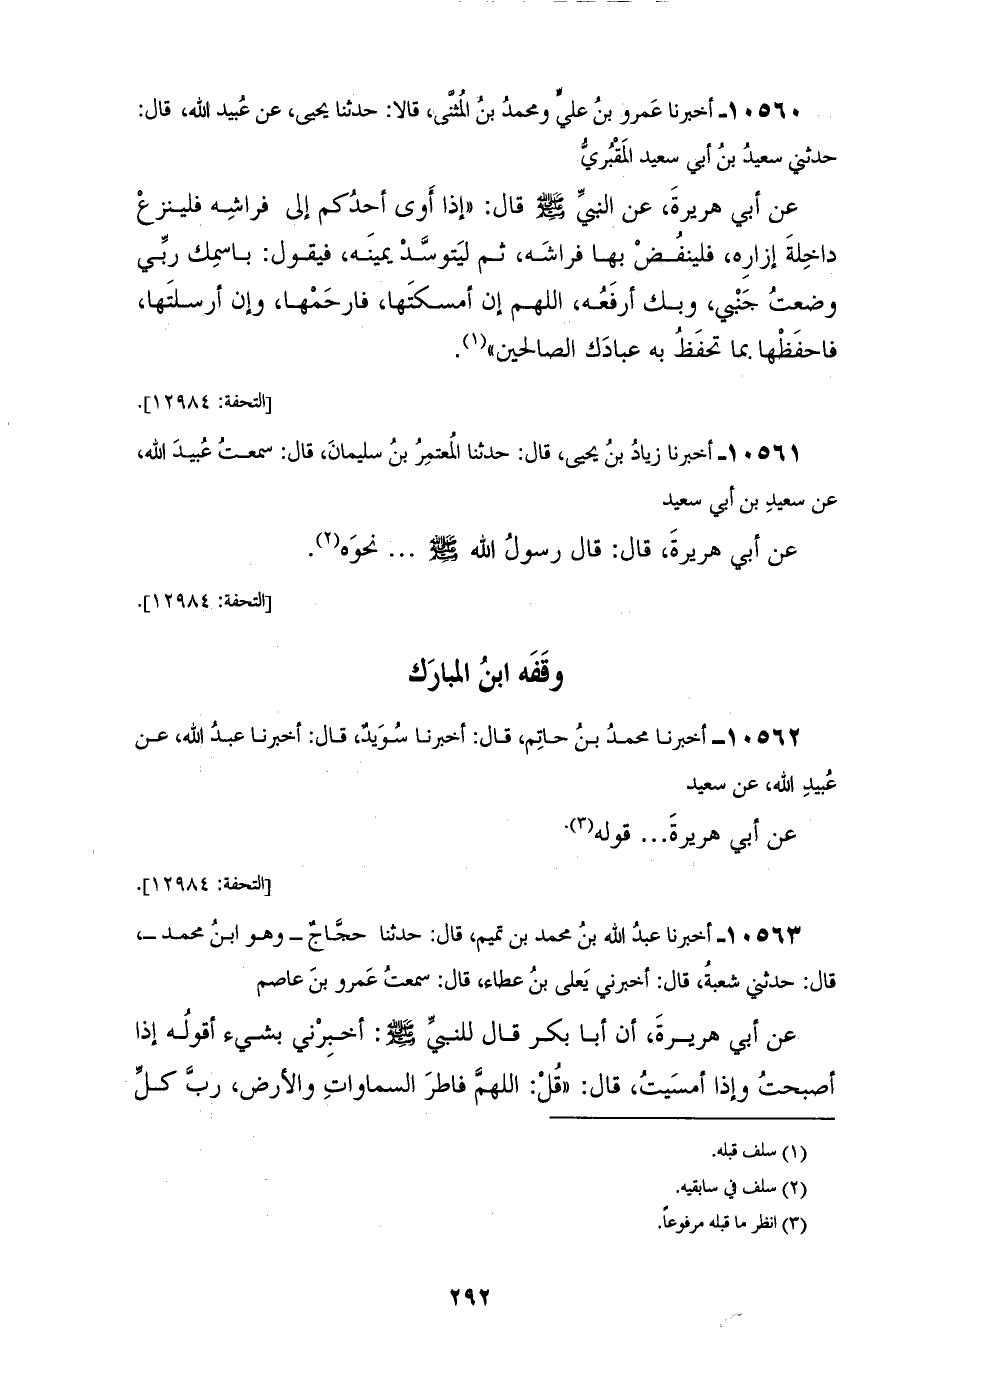 ١٠٥٦٠ـ أخبرنا عَمرو بنُ عليٍّ ومحمدُ بنُ المُثنَّى، قالا: حدثنا يحيى، عن عُبيد الله، قال:
حدثني سعيدُ بنُ أبي سعيد المَقْبُريُّ
عن أبي هريرةَ، عن النبيِّ ﷺ قال: «إذا أَوى أحدُكم إلى فراشِه فلينزعْ
داخِلةَ إزارِه، فلينفُضْ بها فراشَه، ثم ليَتوسَّدْ يمينَه، فيقول: باسمِك ربِّي
وضعتُ جَنْبي، وبك أرفَعُه، اللهم إن أمسكتَها، فارحَمْها، وإن أرسلتَها،
فاحفَظْها بما تحفَظُ به عبادَك الصالحين»(١).
[التحفة: ١٢٩٨٤].
١٠٥٦١ـ أخبرنا زيادُ بنُ يحيى، قال: حدثنا المُعتمِرُ بنُ سليمانَ، قال: سمعتُ عُبيدَ الله،
عن سعيدِ بن أبي سعيد
عن أبي هريرةَ، قال: قال رسولُ الله ﷺ ... نحوَه(٢).
[التحفة: ١٢٩٨٤].
وقَفَه ابنُ المبارَك
١٠٥٦٢ـ أخبرنا محمدُ بنُ حاتِم، قال: أخبرنا سُوَيدٌ، قال: أخبرنا عبدُ الله، عن
عُبيدِ الله، عن سعيد
عن أبي هريرةَ... قوله(٣).
[التحفة: ١٢٩٨٤].
١٠٥٦٣ـ أخبرنا عبدُ الله بنُ محمد بن تميم، قال: حدثنا حجَّاجٌ ـ وهو ابنُ محمد ـ،
قال: حدثني شعبةُ، قال: أخبرني يَعلى بنُ عطاء، قال: سمعتُ عَمرو بنَ عاصم
عن أبي هريرةَ، أن أبا بكر قال للنبيِّ ﷺ: أخبِرْني بشيء أقولُه إذا
أصبحتُ وإذا أمسَيتُ، قال: «قُلْ: اللهمَّ فاطرَ السماواتِ والأرض، ربَّ كلِّ
(١) سلف قبله.
(٢) سلف في سابقيه.
(٣) انظر ما قبله مرفوعاً.
٢٩٢